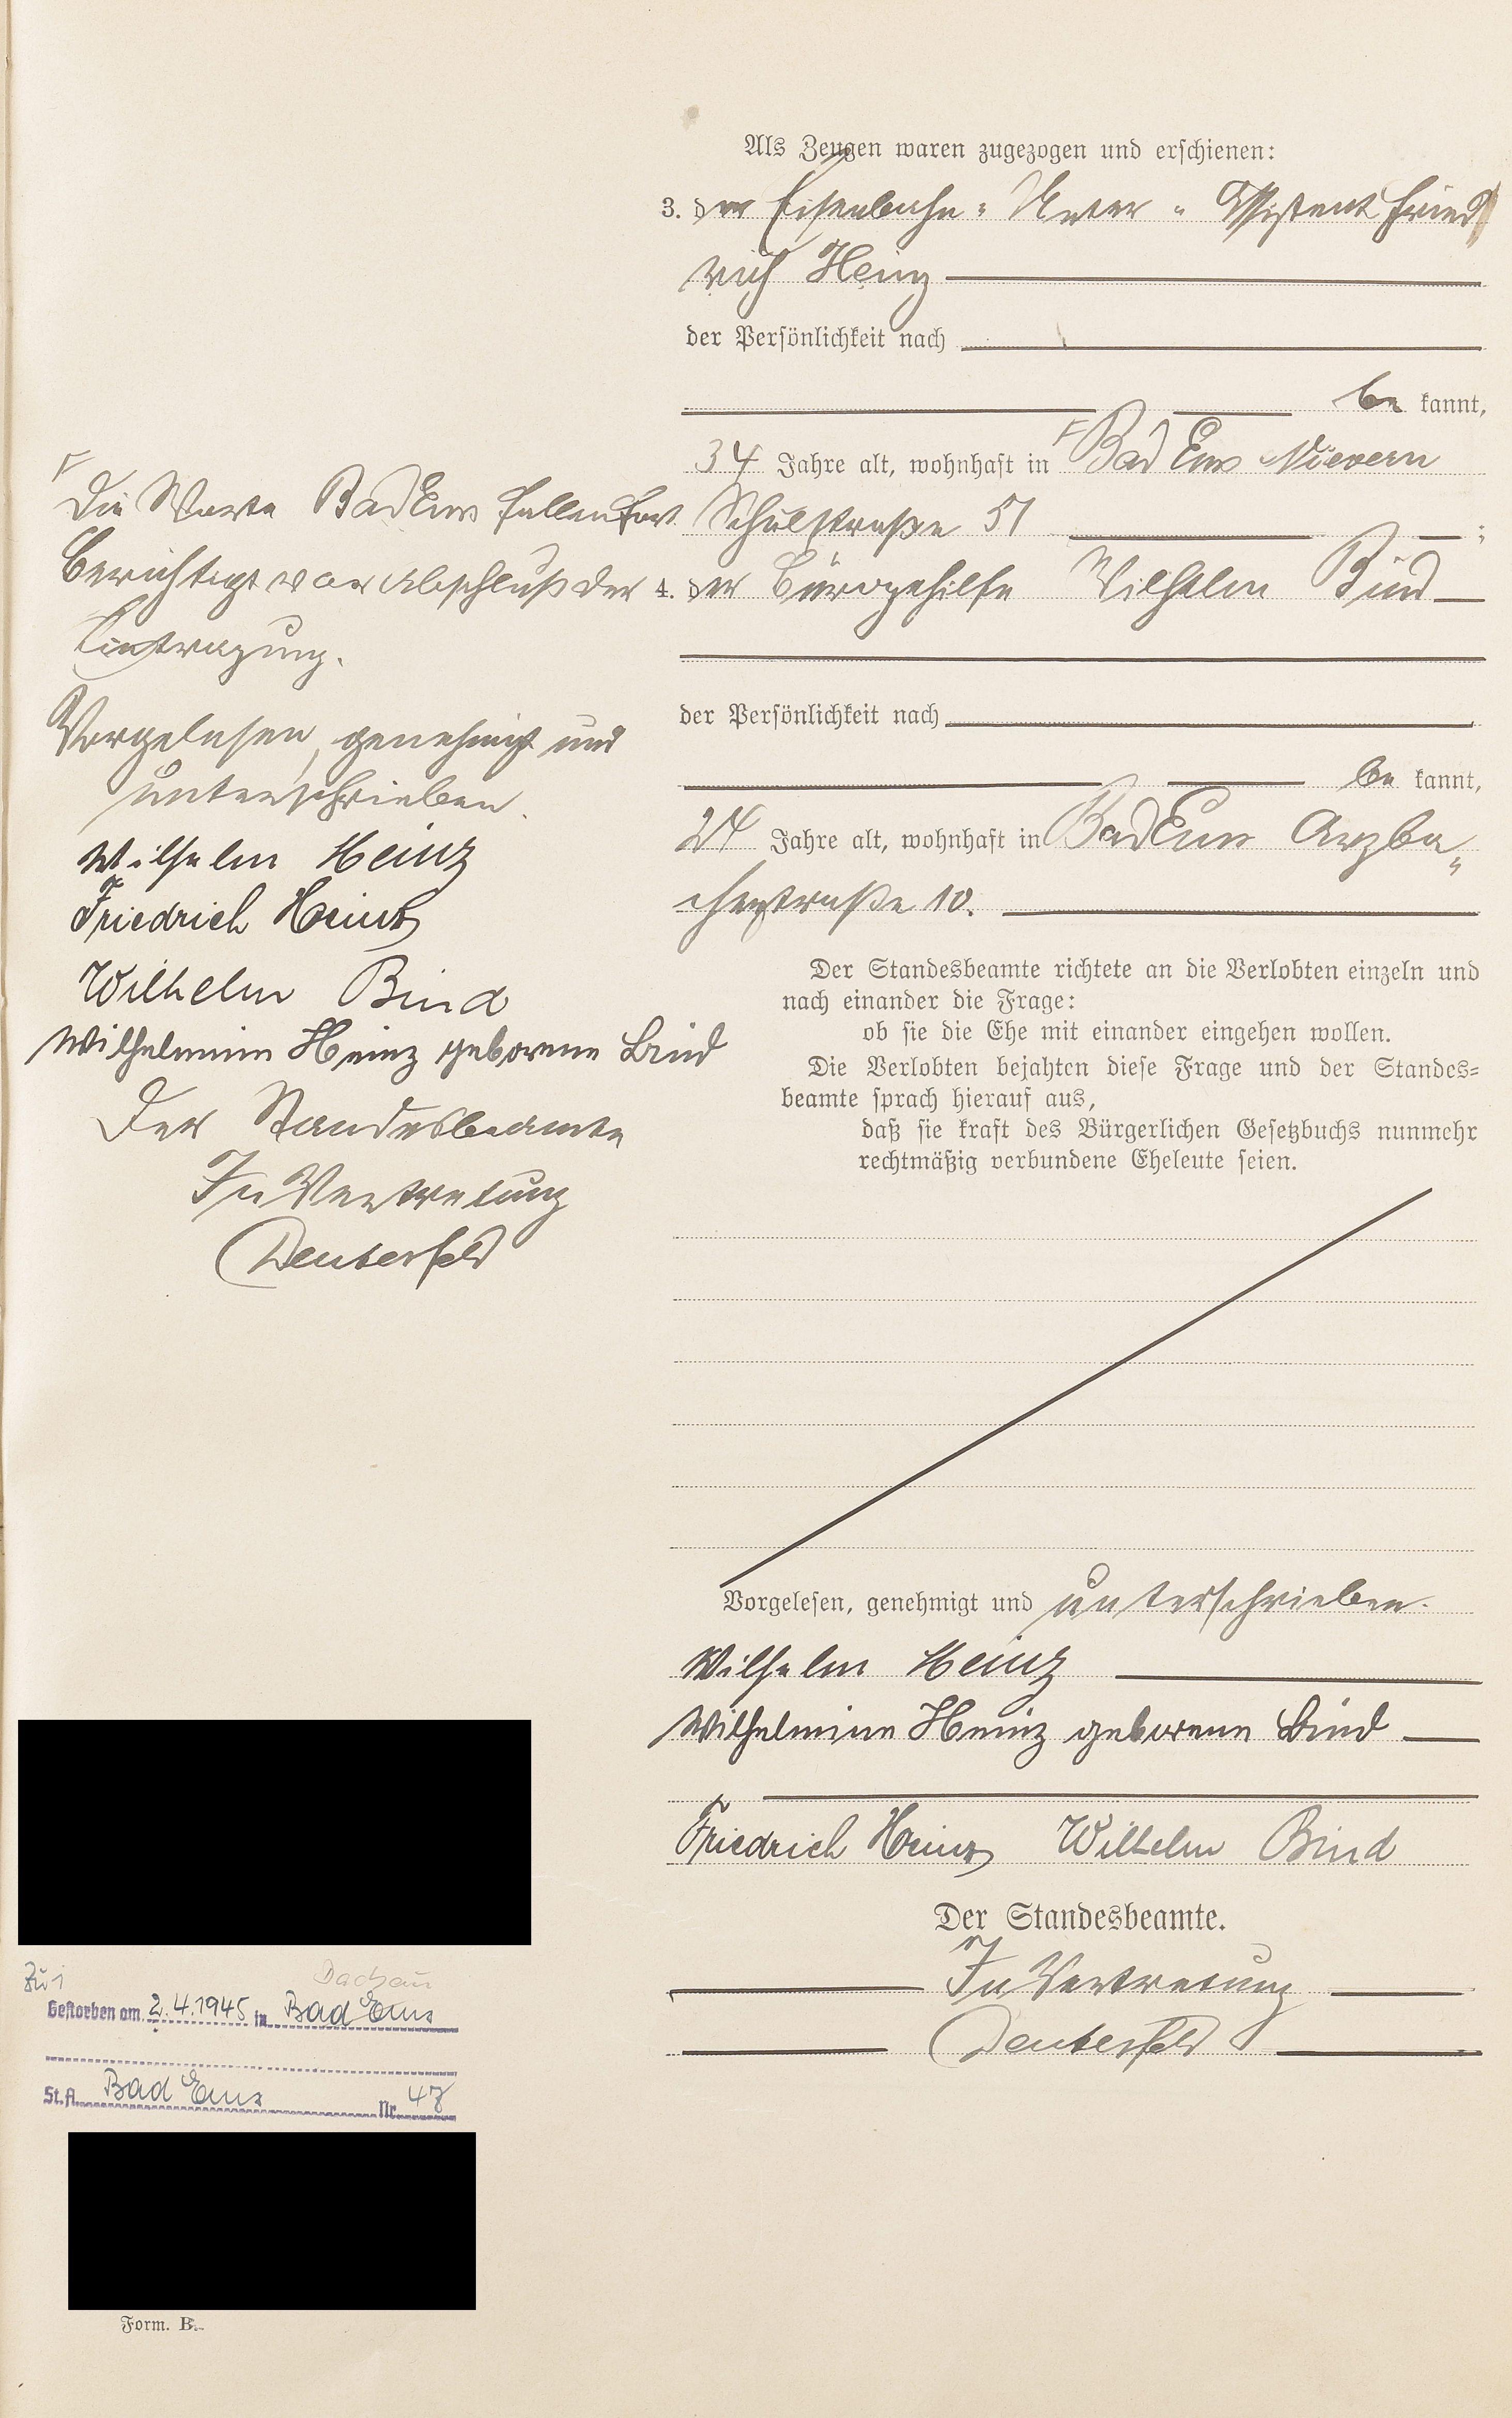 Als Zeugen waren zugezogen und erschienen:
3. der Eisenbahn-Unter-Assistent Fried
rich Heinz
der Persönlichkeit nach
be kannt,
34 Jahre alt, wohnhaft in Bad Ems Nievern
Schulstraße 51 ;
4. der Bürogehilfe Wilhelm Bind
der Persönlichkeit nach
be kannt,
24 Jahre alt, wohnhaft in Bad Ems Arzba„
cherstraße 10.
Der Standesbeamte richtete an die Verlobten einzeln und
nach einander die Frage:
ob sie die Ehe mit einander eingehen wollen.
Die Verlobten bejahten diese Frage und der Standes=
beamte sprach hierauf aus,
daß sie kraft des Bürgerlichen Gesetzbuchs nunmehr
rechtmäßig verbundene Eheleute seien.
Vorgelesen, genehmigt und unterschrieben.
Wilhelm Heinz
Wilhelmine Heinz geborene Bind
Friedrich Heinz Wilhelm Bind
Der Standesbeamte.
In Vertretung
Die Worte Bad Ems fallen fort.
Berichtigt vor Abschluß der
Eintragung.
Vorgelesen, genehmigt und
unterschrieben.
Wilhelm Heinz
Friedrich Heinz
Wilhelm Bind
Wilhelmine Heinz geborene Bind
Der Standesbeamte
In Vertretung
Gestorben am 2.4.1945 in Bad Ems
St.A. Bad Ems Nr. 47
Form. B.